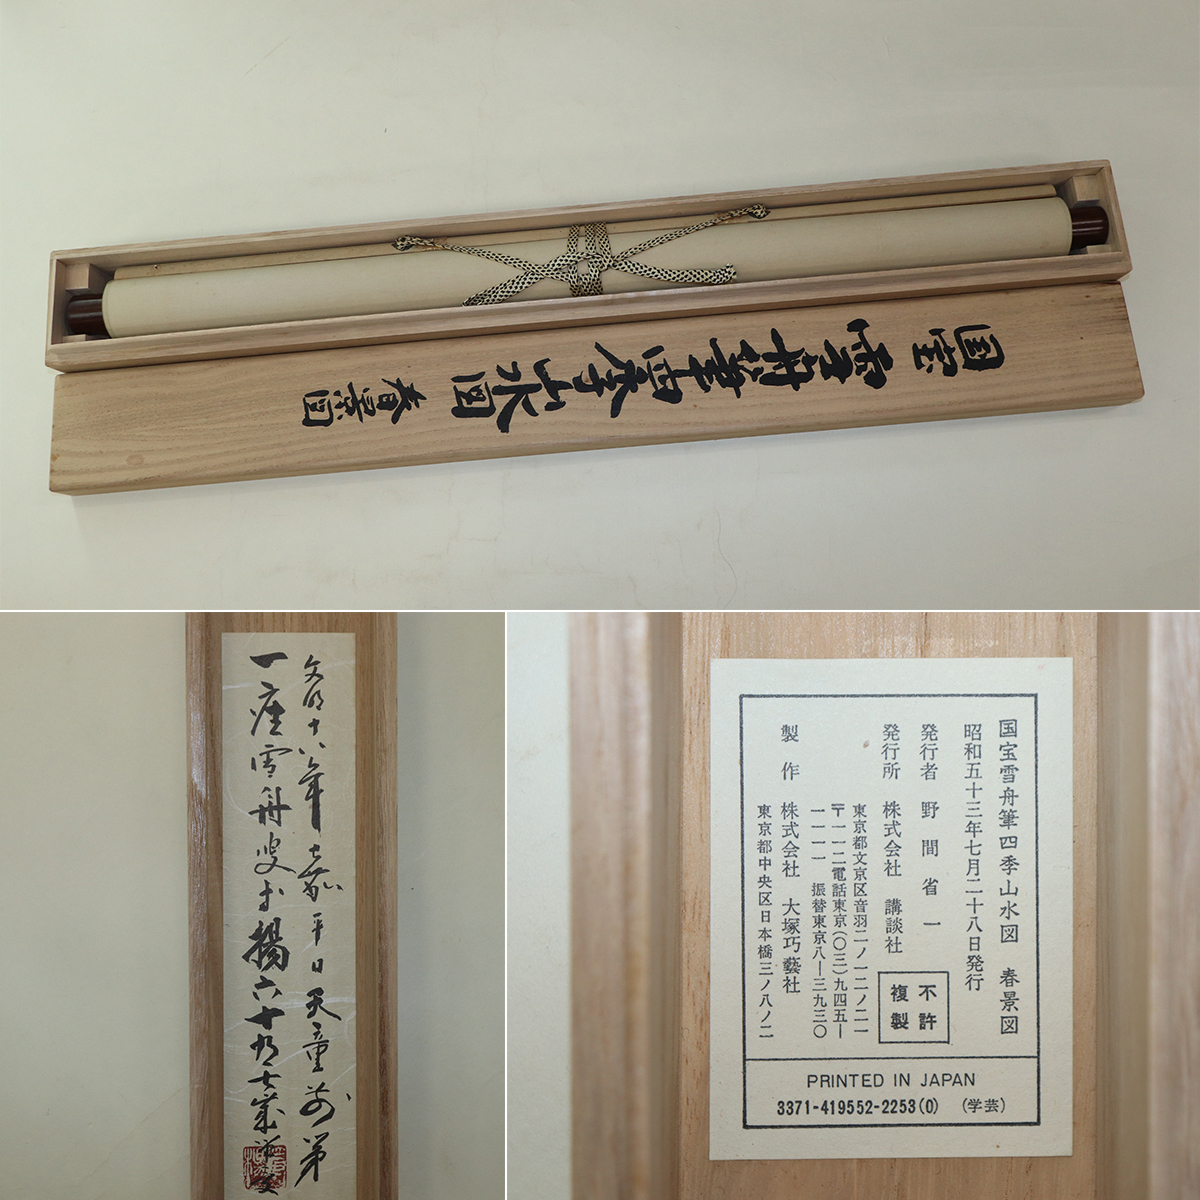 国宝 雪舟筆四季山水図 春景図
文明十八年嘉平日天童前第
一座雪舟叟等楊六十有七歳筆受
国宝雪舟筆四季山水図 春景図
昭和五十三年七月二十八日発行
発行者 野間省一
発行所 株式会社 講談社
東京都文京区音羽二ノ一二ノ二一
〒一一二電話東京(〇三)九四五—
一一一一 振替東京八—三九三〇
製作 株式会社 大塚巧藝社
東京都中央区日本橋三ノ八ノ二
不許
複製
PRINTED IN JAPAN
3371-419552-2253(0) (学芸)